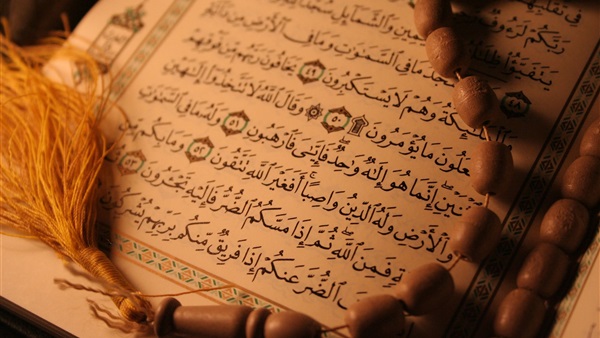 فِي
رَبَّكُمْ وَٱلشَّمَآئِلِ سُجَّدًا
يَتَفَيَّؤُا۟ ظِلَٰلُهُۥ مَا فِى ٱلسَّمَٰوَٰتِ وَمَا فِى ٱلْأَرْضِ مِن
وَهُمْ لَا يَسْتَكْبِرُونَ ٤٩ يَخَافُونَ رَبَّهُم مِّن فَوْقِهِمْ
مَا يُؤْمَرُونَ ۩ ٥٠ وَقَالَ ٱللَّهُ لَا تَتَّخِذُوٓا۟ إِلَٰهَيْنِ
إِنَّمَا هُوَ إِلَٰهٌ وَٰحِدٌ فَإِيَّٰىَ فَٱرْهَبُونِ ٥١ وَلَهُۥ مَا فِى ٱلسَّمَٰوَٰتِ
وَٱلْأَرْضِ وَلَهُ ٱلدِّينُ وَاصِبًا أَفَغَيْرَ ٱللَّهِ تَتَّقُونَ ٥٢ وَمَا بِكُم مِّن
فَمِنَ ٱللَّهِ ثُمَّ إِذَا مَسَّكُمُ ٱلضُّرُّ فَإِلَيْهِ تَجْـَٔرُونَ ٥٣
ٱلضُّرَّ عَنكُمْ إِذَا فَرِيقٌ مِّنكُم بِرَبِّهِمْ يُشْرِكُونَ